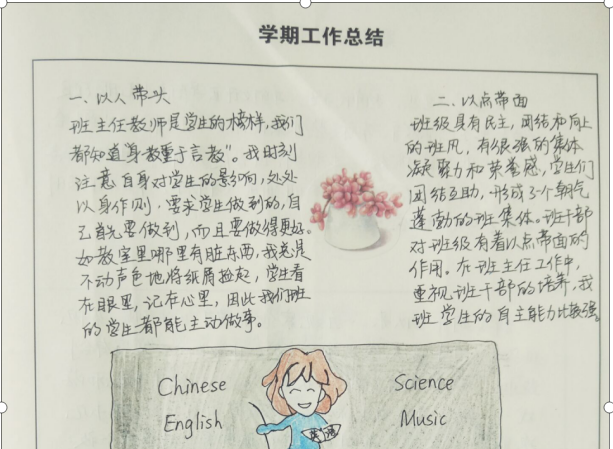 学期工作总结
一、以人带头
班主任教师是学生的榜样,我们
都知道“身教重于言教”。我时刻
注意自身对学生的影响,处处
以身作则,要求学生做到的,自
己首先要做到,而且要做得更好。
如教室里哪里有脏东西,我总是
不动声色地将纸屑捡起,学生看
在眼里,记在心里,因此我们班
的学生都能主动做事。
二、以点带面
班级具有民主,团结和向上
的班风,有很强的集体
凝聚力和荣誉感,学生们
团结互助,形成了个朝气
蓬勃的班集体。班干部
对班级有着以点带面的
作用。在班主任工作中,
重视班干部的培养,我
班学生的自主能力比较强。
Chinese
English
Science
Music
英语